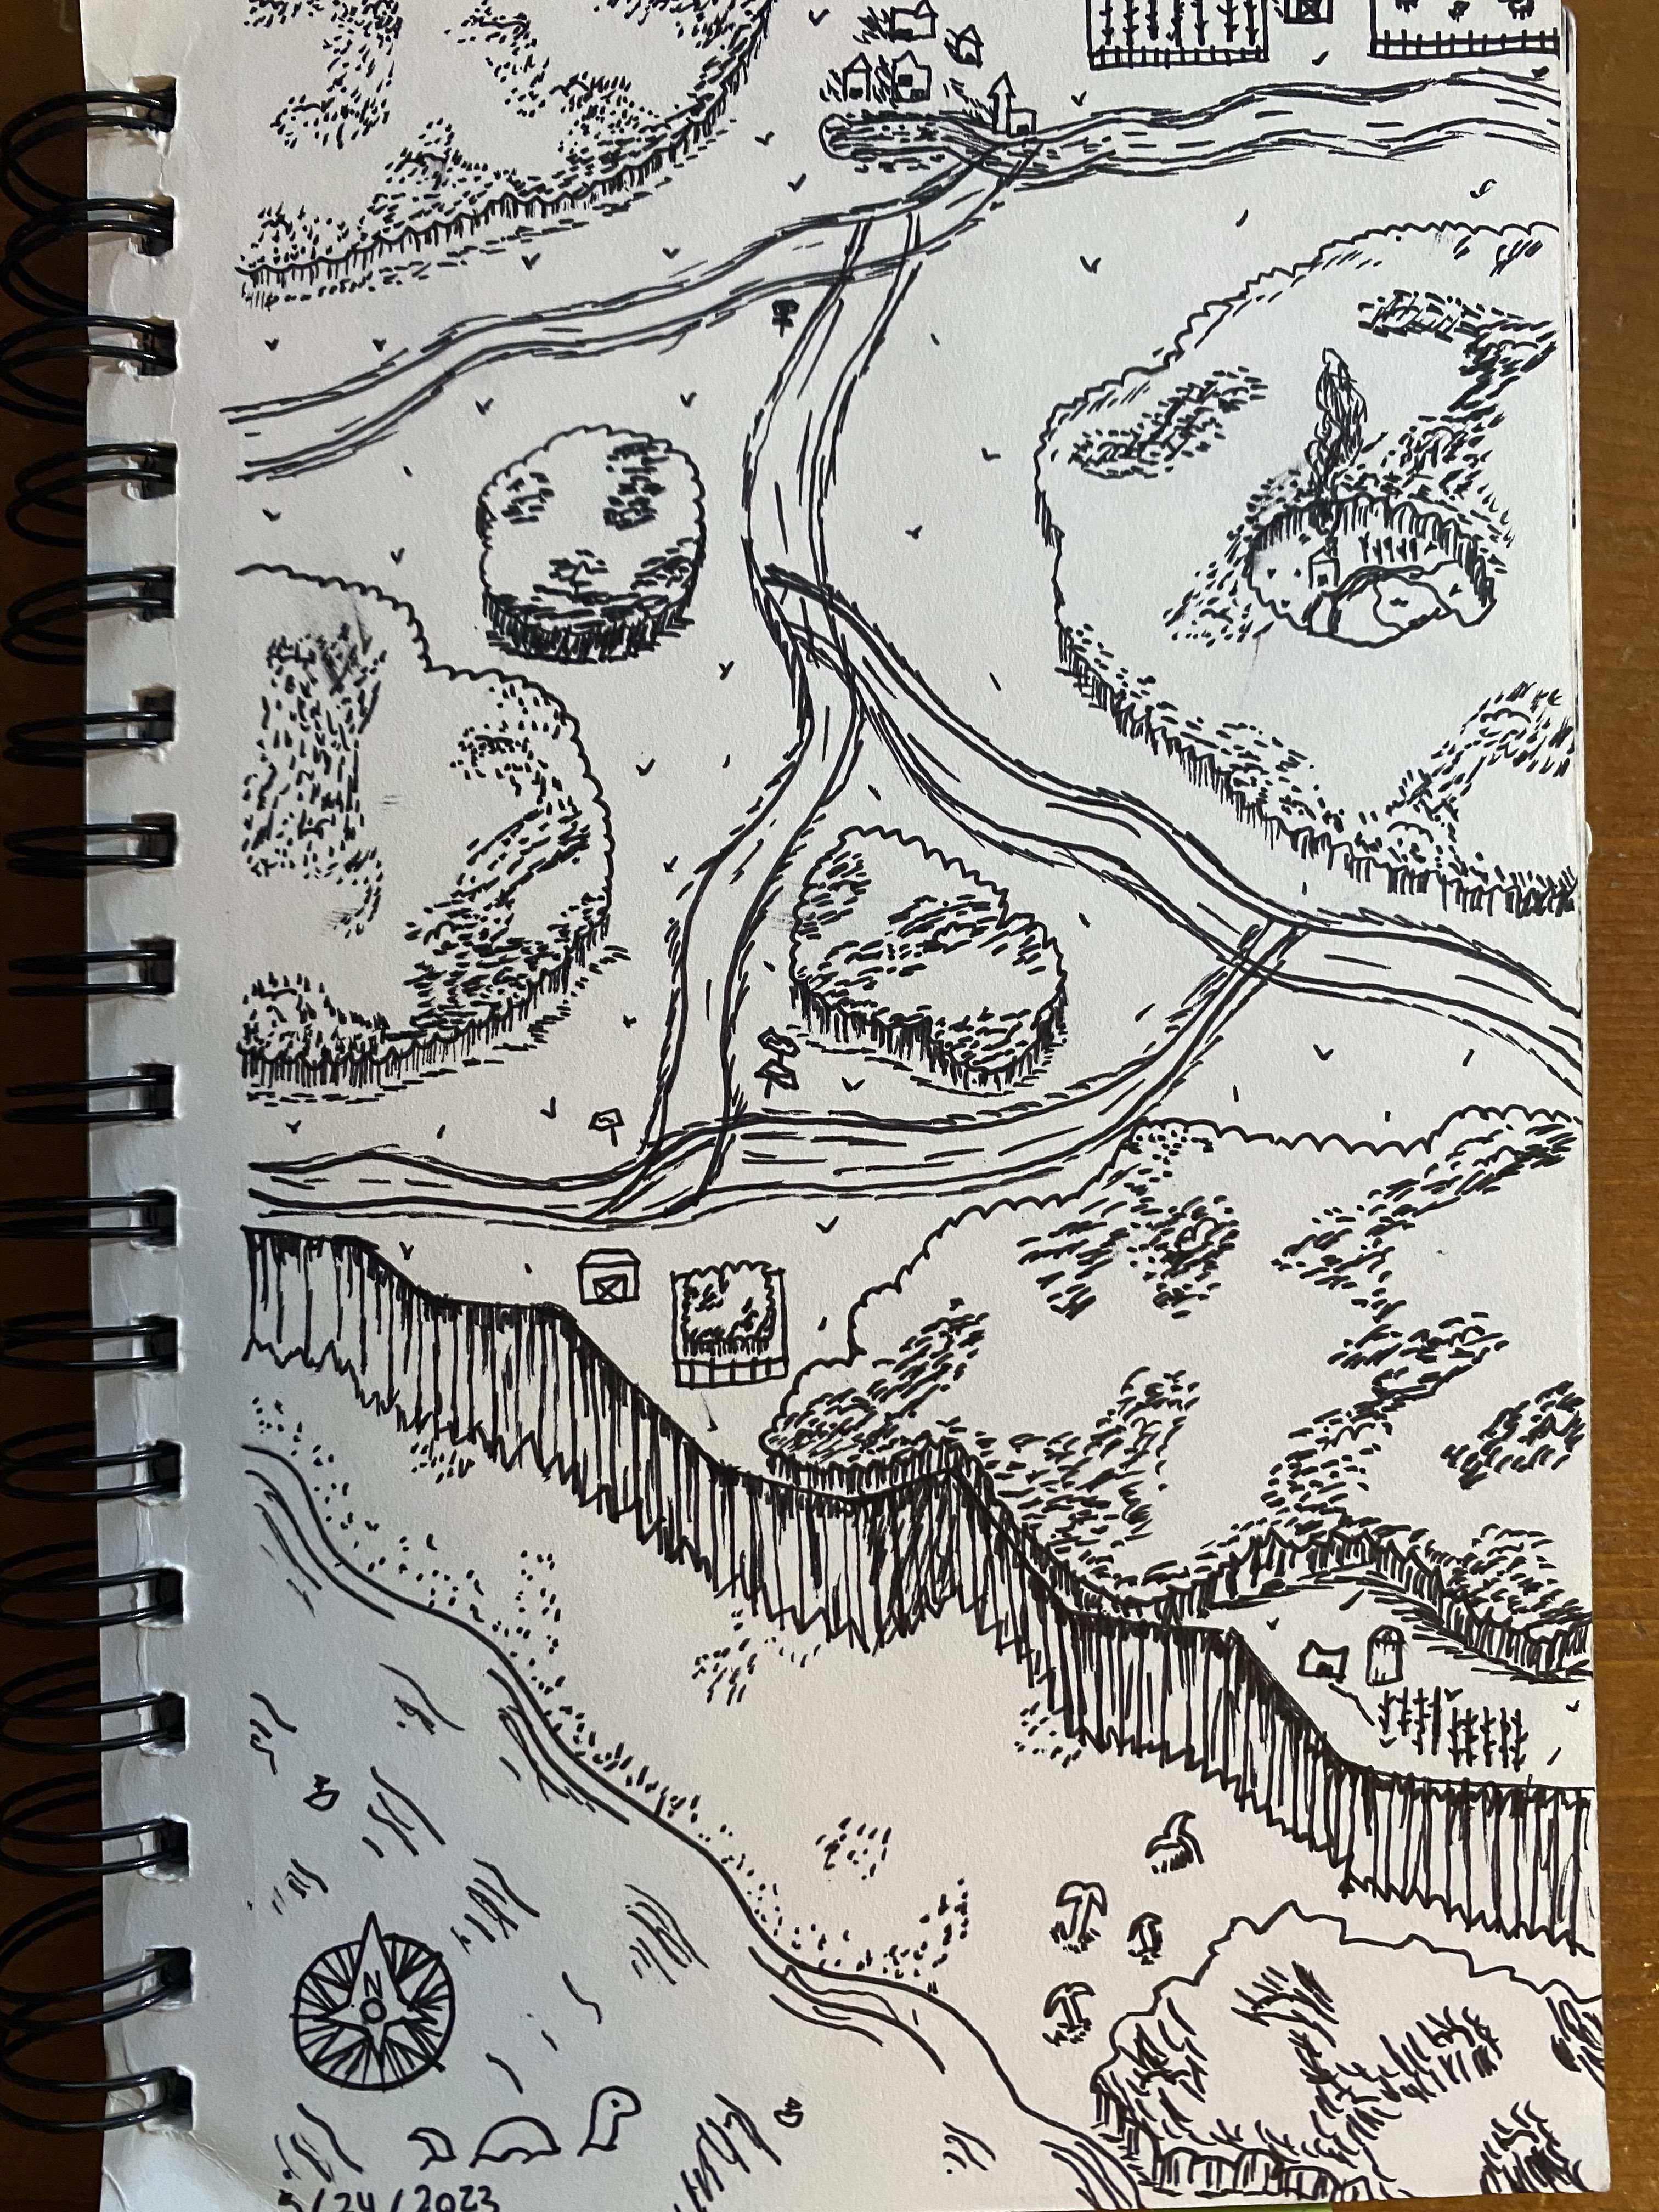 N
5/24/2023